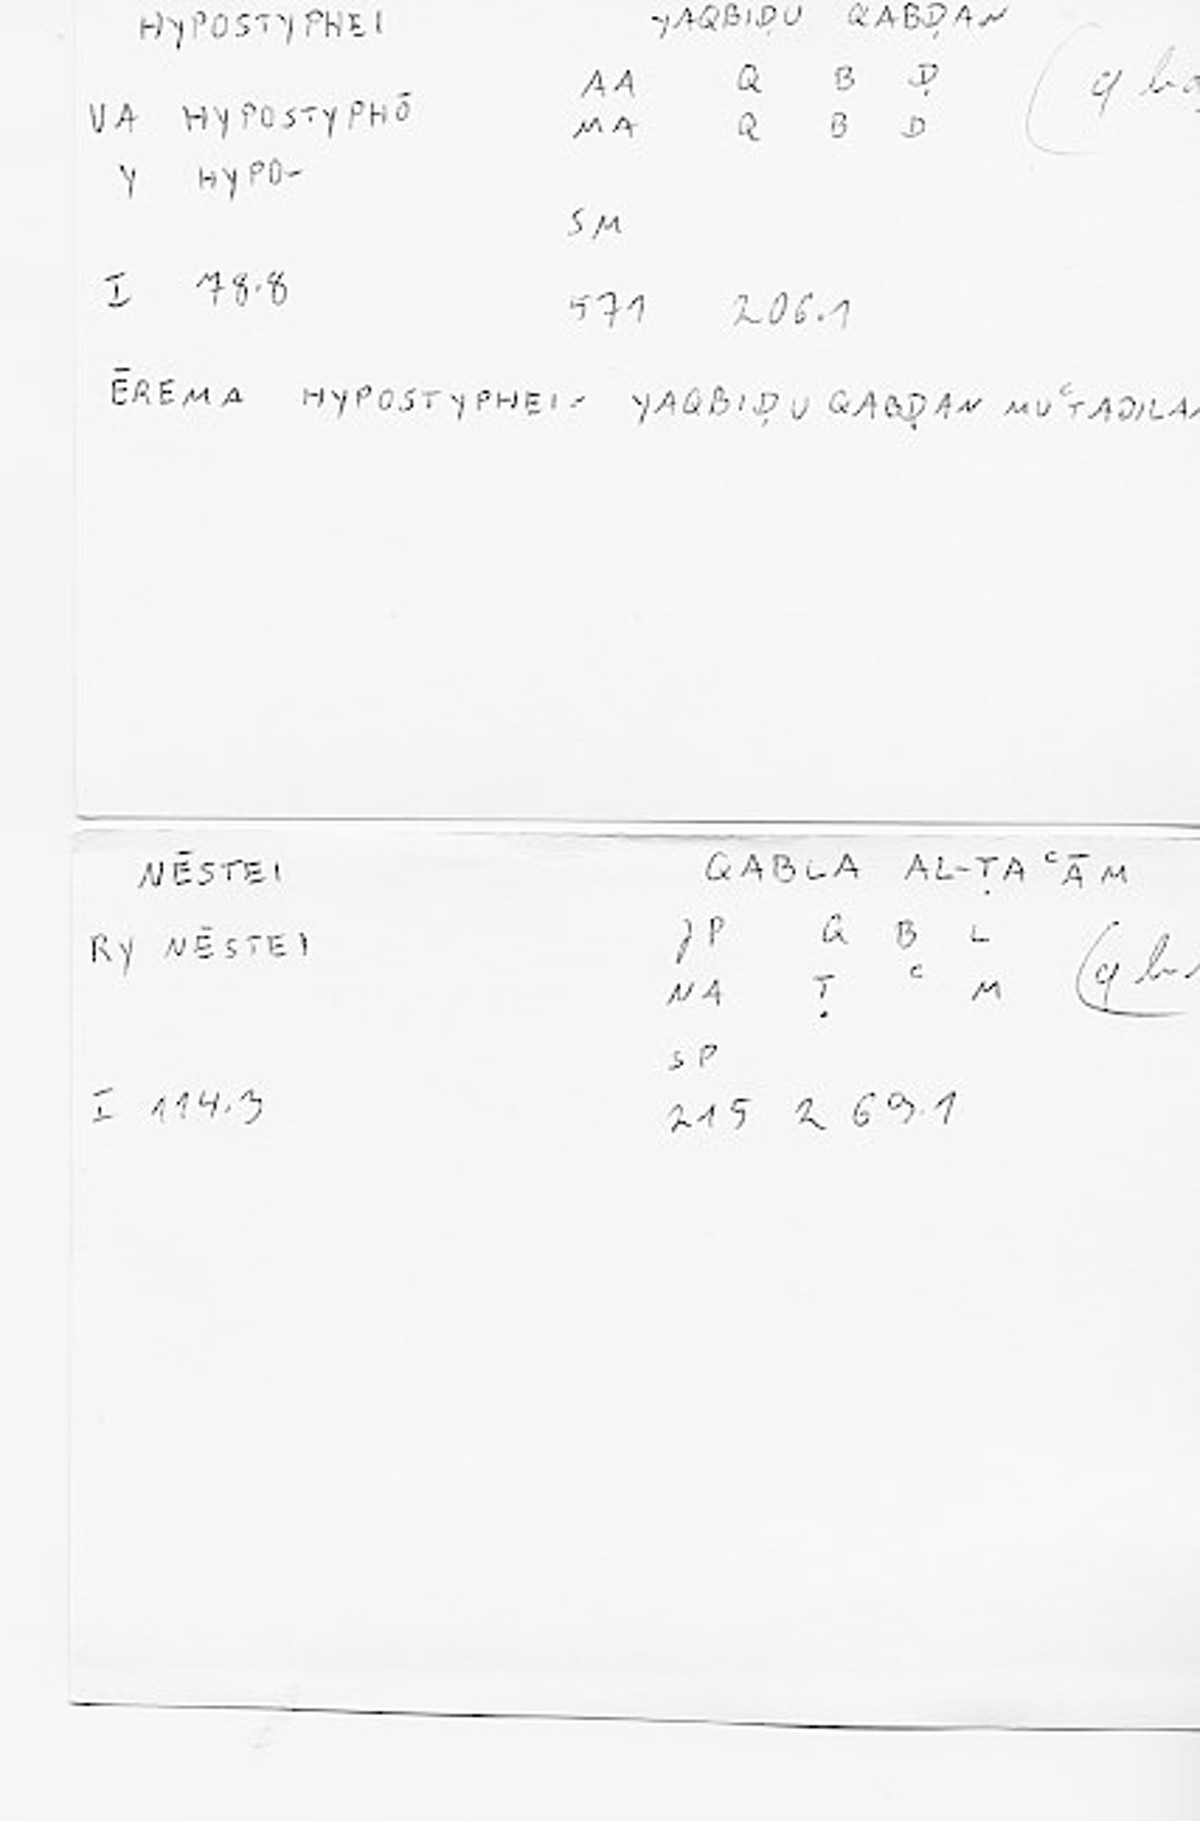 HYPOSTYPHEI YAQBIḌU QABḌAN
AA Q B Ḍ
VA HYPOSTYPHŌ MA Q B D
Y HYPO-
SM
I 78.8 571 206.1
ĒREMA HYPOSTYPHEI- YAQBIḌU QABḌAN MUᶜTADILAN
NĒSTEI QABLA AL-ṬAᶜĀM
RY NĒSTEI JP Q B L
NA Ṭ ᶜ M
SP
I 114.3 215 269.1